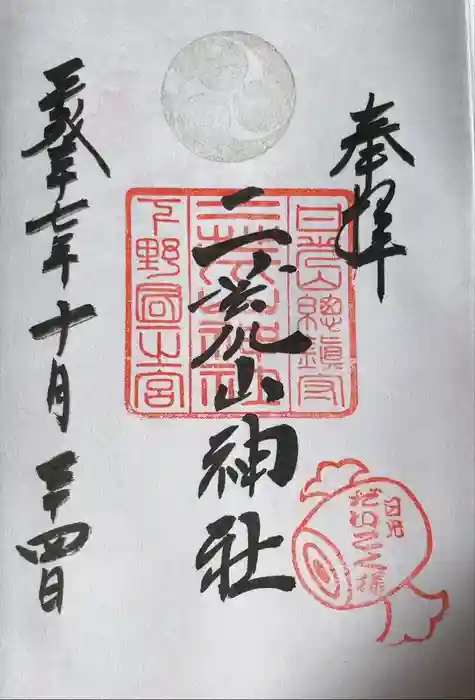 奉拝
日光山總鎮守
二荒山神社
二荒山神社
下野國一之宮
日光
だいこく様
平成二十七年十月二十四日